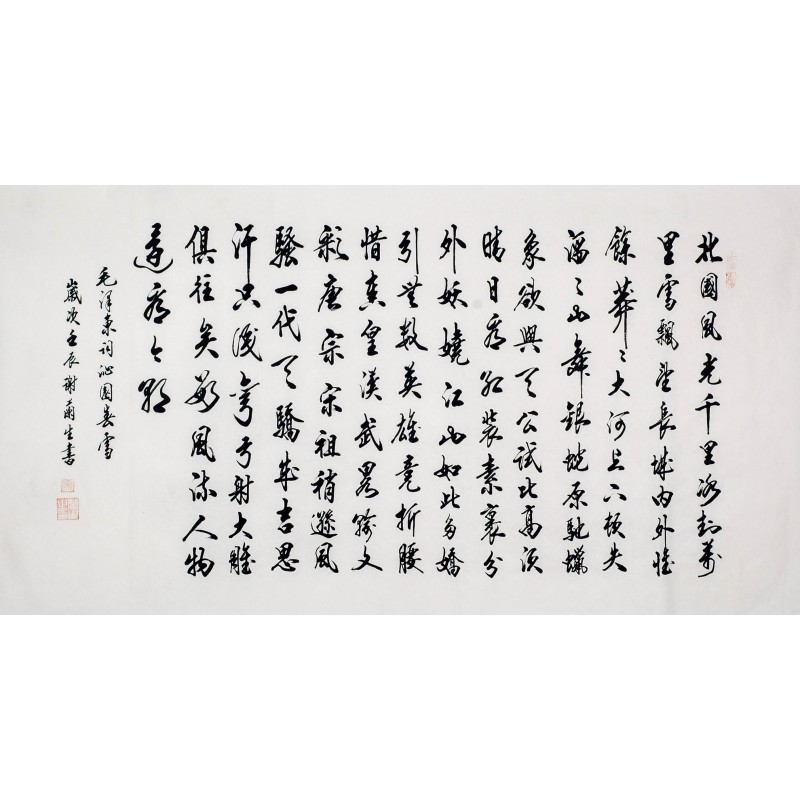 北國風光千里冰封萬
里雪飄望長城內外惟
餘莽〻大河上下頓失
滔〻山舞銀蛇原馳蠟
象欲與天公試比高須
晴日看紅裝素裹分
外妖嬈江山如此多嬌
引無數英雄競折腰
惜秦皇漢武略輸文
彩唐宗宋祖稍遜風
騷一代天驕成吉思
汗只識彎弓射大雕
俱往矣數風流人物
還看今朝
毛澤東詞沁園春雪
歲次壬辰謝生書